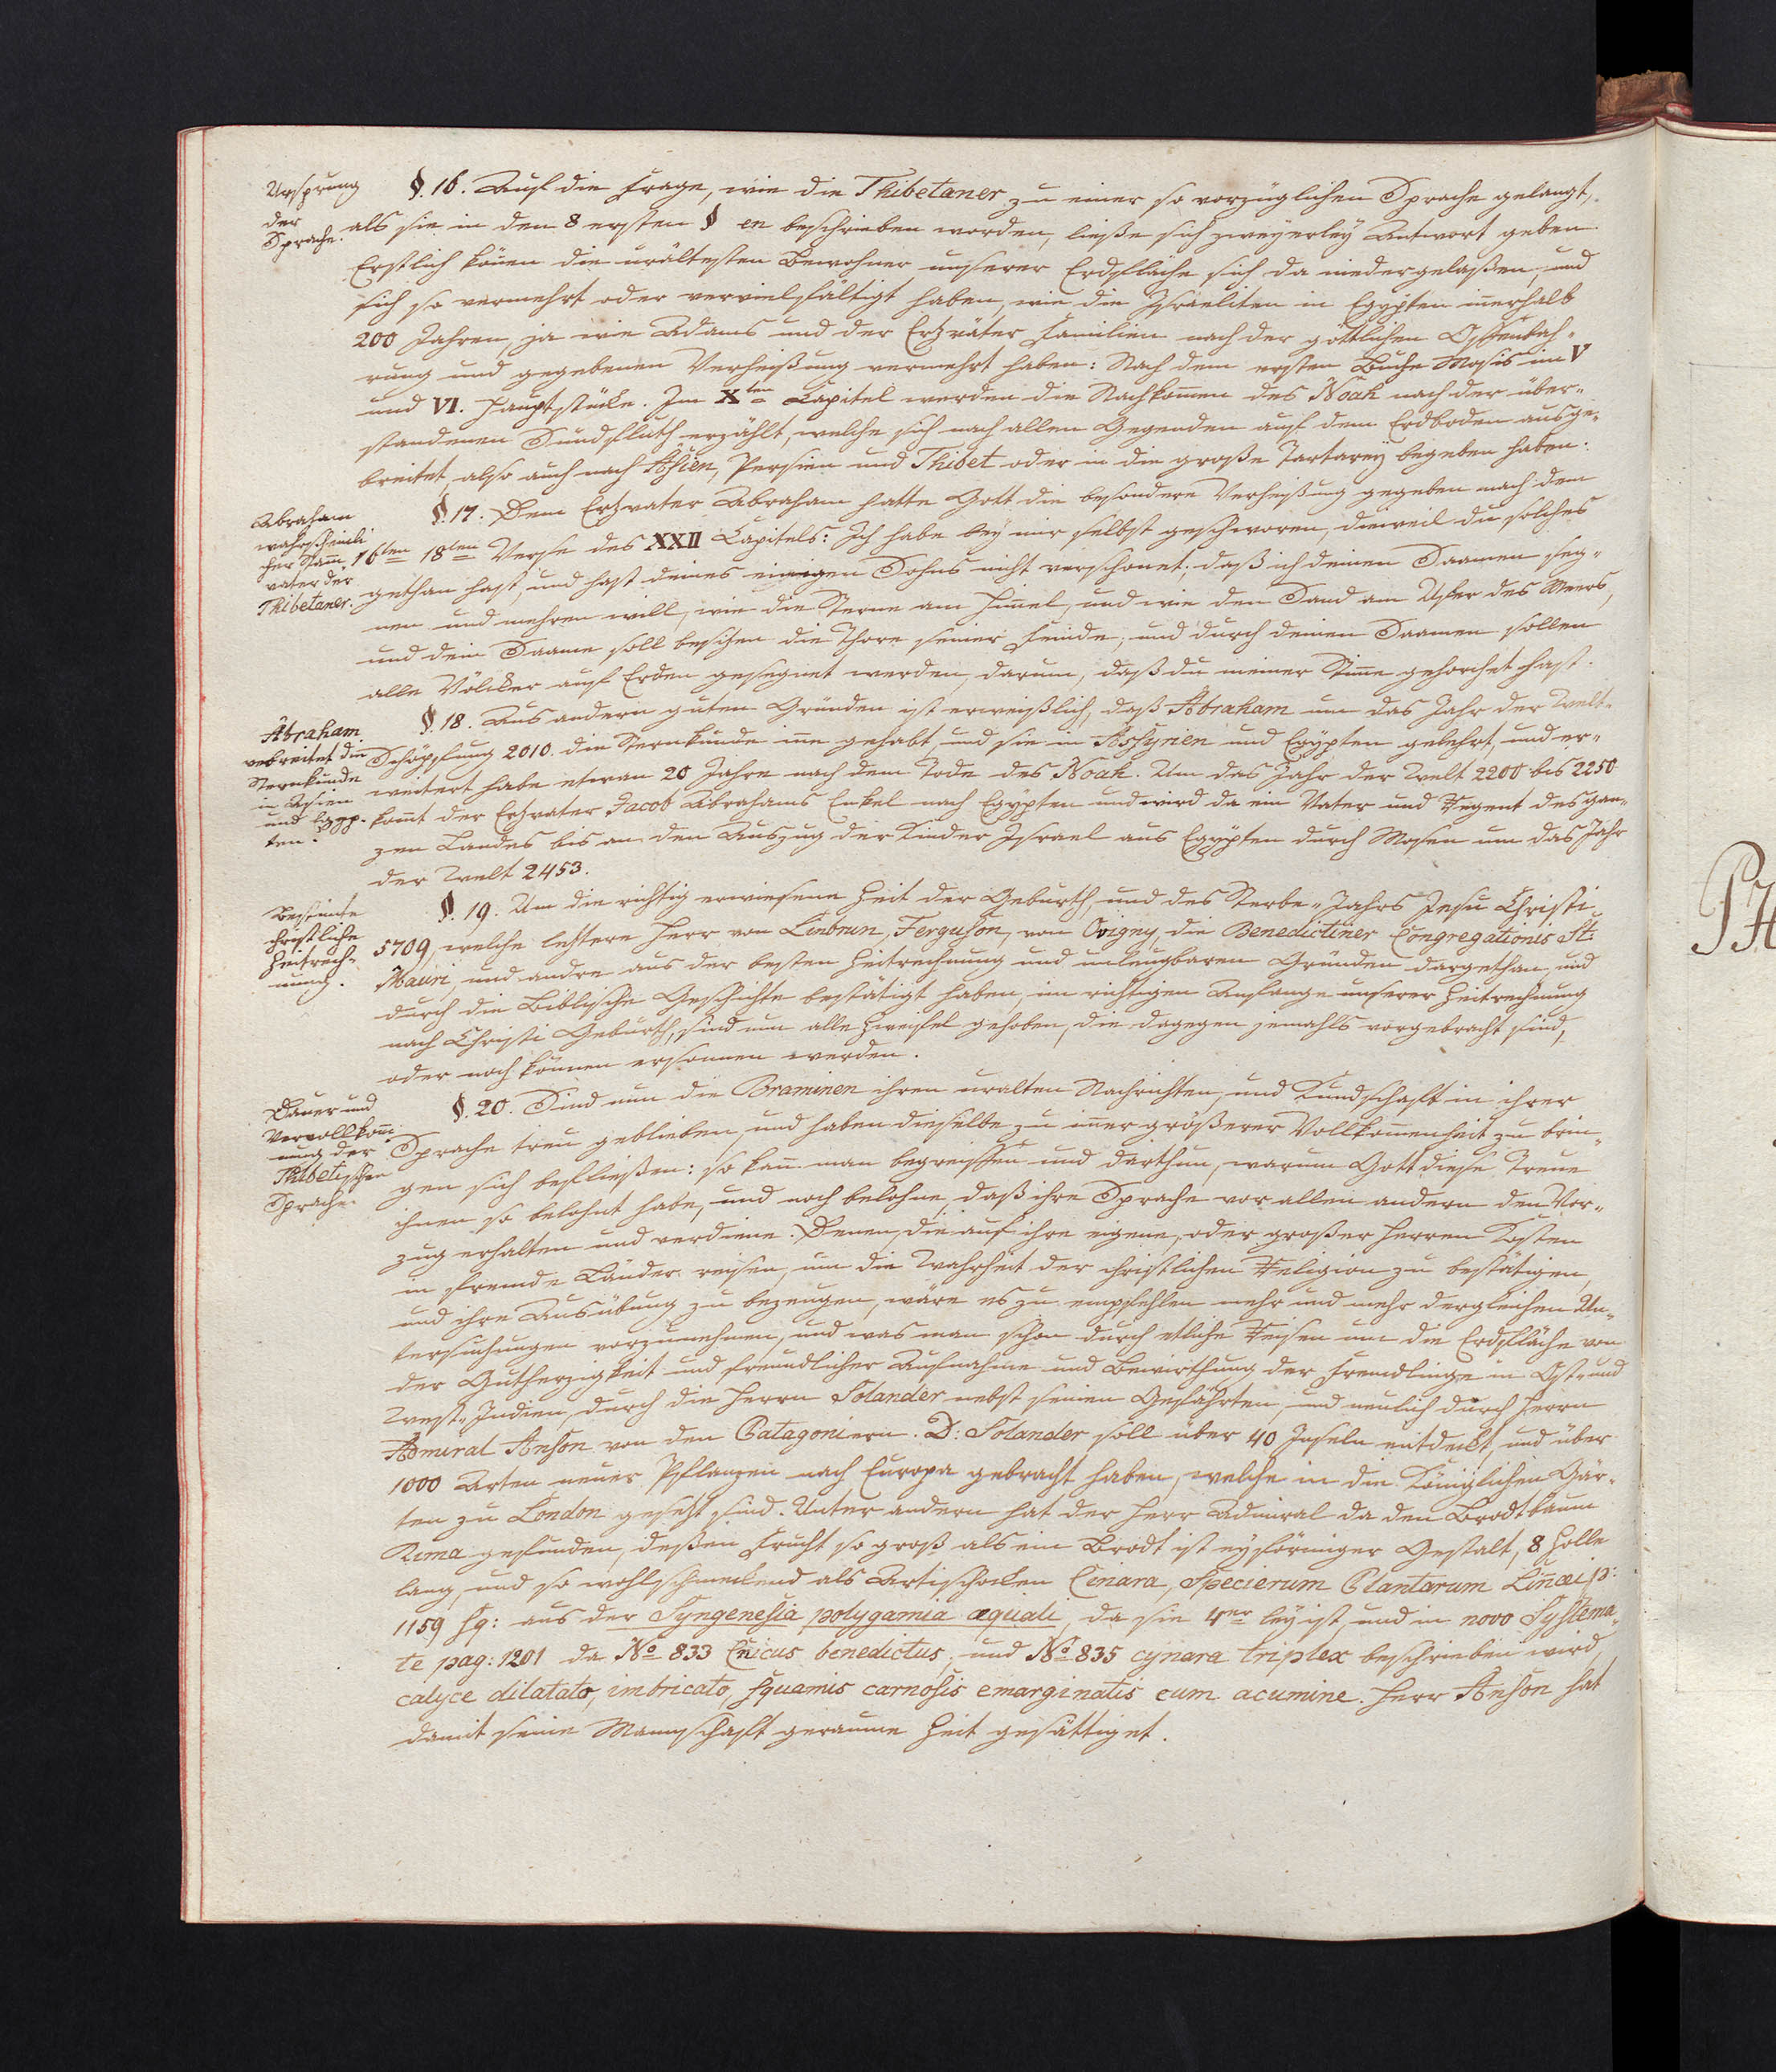 Ursprung
der
Sprache.
§. 16. Auf die Frage, wie die Thibetaner zu einer so vorzüglichen Sprache gelangt,
als sie in den 8 ersten § en beschrieben worden, ließe sich zweyerley Antwort geben
Erstlich köñen die urältesten Bewohner unserer Erdfläche sich da niedergelaßen, und
sich so vermehrt oder vervielfältigt haben, wie die Israeliten in Egypten iñerhalb
200 Jahren, ja wie Adams und der Erzväter Familien nach der göttlichen Offenbah-
rung und gegebenen Verheißung vermehrt haben: Nach dem ersten Buche Mosis im V
und VI. Hauptstücke. Im Xten Capitel werden die Nachkom̃en des Noah nach der über-
standenen Sündfluth erzählt, welche sich nach allen Gegenden auf dem Erdboden ausge-
breitet, also auch nach Asien, Persien und Thibet oder in die große Tartarey begeben haben.
Abraham
wahrscheinli
cher Stam̃-
vater der
Thibetaner.
§. 17. Dem Erzvater Abraham hatte Gott die besondere Verheißung gegeben nach dem
16ten 18ten Verse des XXII Capitels: Ich habe bey mir selbst geschworen, dieweil du solches
gethan hast, und hast deines einigen Sohns nicht verschonet; daß ich deinen Saamen seg-
nen und mehren will, wie die Sterne am Him̃el, und wie den Sand am Ufer des Meers,
und dein Saame soll besitzen die Thore seiner Feinde; und durch deinen Saamen sollen
alle Völcker auf Erden gesegnet werden, darum, daß du meiner Stim̃e gehorchet hast.
Abraham
verbreitet die
Sternkunde
in Asien
und Egyp-
ten.
§. 18. Aus andern guten Gründen ist erweißlich, daß Abraham um das Jahr der Welt-
Schöpfung 2010. die Sternkunde iñe gehabt, und sie in Assyrien und Egypten gelehrt, und er-
weitert habe etwan 20 Jahre nach dem Tode des Noah. Um das Jahr der Welt 2200 bis 2250
kom̃t der Erzvater Jacob Abrahams Enkel nach Egypten und wird da ein Vater und Regent des gan-
zen Landes bis an den Auszug der Kinder Israel aus Egypten durch Mosen um das Jahr
der Welt 2453.
Bestim̃te
christliche
Zeitrech-
nung.
§. 19. Um die richtig erwiesene Zeit der Geburth, und des Sterbe-Jahrs Jesu Christi
5709, welche letztere Herr von Linbrun, Ferguson, von Ovigny, die Benedictiner Congregationis St:
Mauri, und andre aus der besten Zeitrechnung und unleugbaren Gründen dargethan, und
durch die Biblische Geschichte bestätigt haben, im richtigen Anfange unserer Zeitrechnung
nach Christi Geburth, sind nun alle Zweifel gehoben, die dagegen jemahls vorgebracht sind,
oder noch können ersonnen werden.
Dauer und
Vervollkom̃-
nung der
Thibetischen
Sprache.
§. 20. Sind nun die Braminen ihren uralten Nachrichten, und Kundschaft in ihrer
Sprache treu geblieben, und haben dieselbe zu im̃er größerer Vollkom̃enheit zu brin-
gen sich befließen: so kañ man begreiffen und darthun, warum Gott diese Treue
ihnen so belohnt habe, und noch belohne, daß ihre Sprache vor allen andern den Vor-
zug erhalten und verdiene. Denen, die auf ihre eigene, oder großer Herren Kosten
in fremde Länder reisen, um die Wahrheit der christlichen Religion zu bestätigen,
und ihre Ausübung zu bezeugen, wäre es zu empfehlen mehr und mehr dergleichen Un-
tersuchungen vorzunehmen, und was man schon durch etliche Reisen um die Erdfläche von
der Gutherzigkeit und freundlicher Aufnahme und Bewirthung der Fremdlinge in Ost- und
West-Indien, durch die Herrn Solander nebst seinen Gefährten, und neulich durch Herrn
Admiral Anson von den Patagoniern. D: Solander soll über 40 Inseln entdeckt, und über
1000 Arten neuer Pflanzen nach Europa gebracht haben, welche in die Königlichen Gär-
ten zu London gesetzt sind. Unter andern hat der Herr Admiral da den Brodtbaum
Rima gefunden, deßen Frucht so groß als ein Brodt ist eyförmiger Gestalt, 8 Zolle
lang, und so wohlschmeckend als Artischocken Cinara, Specierum Plantarum Liñæi p:
1159 sq: aus der Syngenesia polygamia æquali, da sie 4er ley ist, und in novo Systema-
te pag: 1201 da No 833 Cnicus benedictus, und No 835 cynara triplex beschrieben wird,
calyce dilatato, imbricato, squamis carnosis emarginatis cum acumine. Herr Anson hat
damit seine Mannschaft geraume Zeit gesättiget.